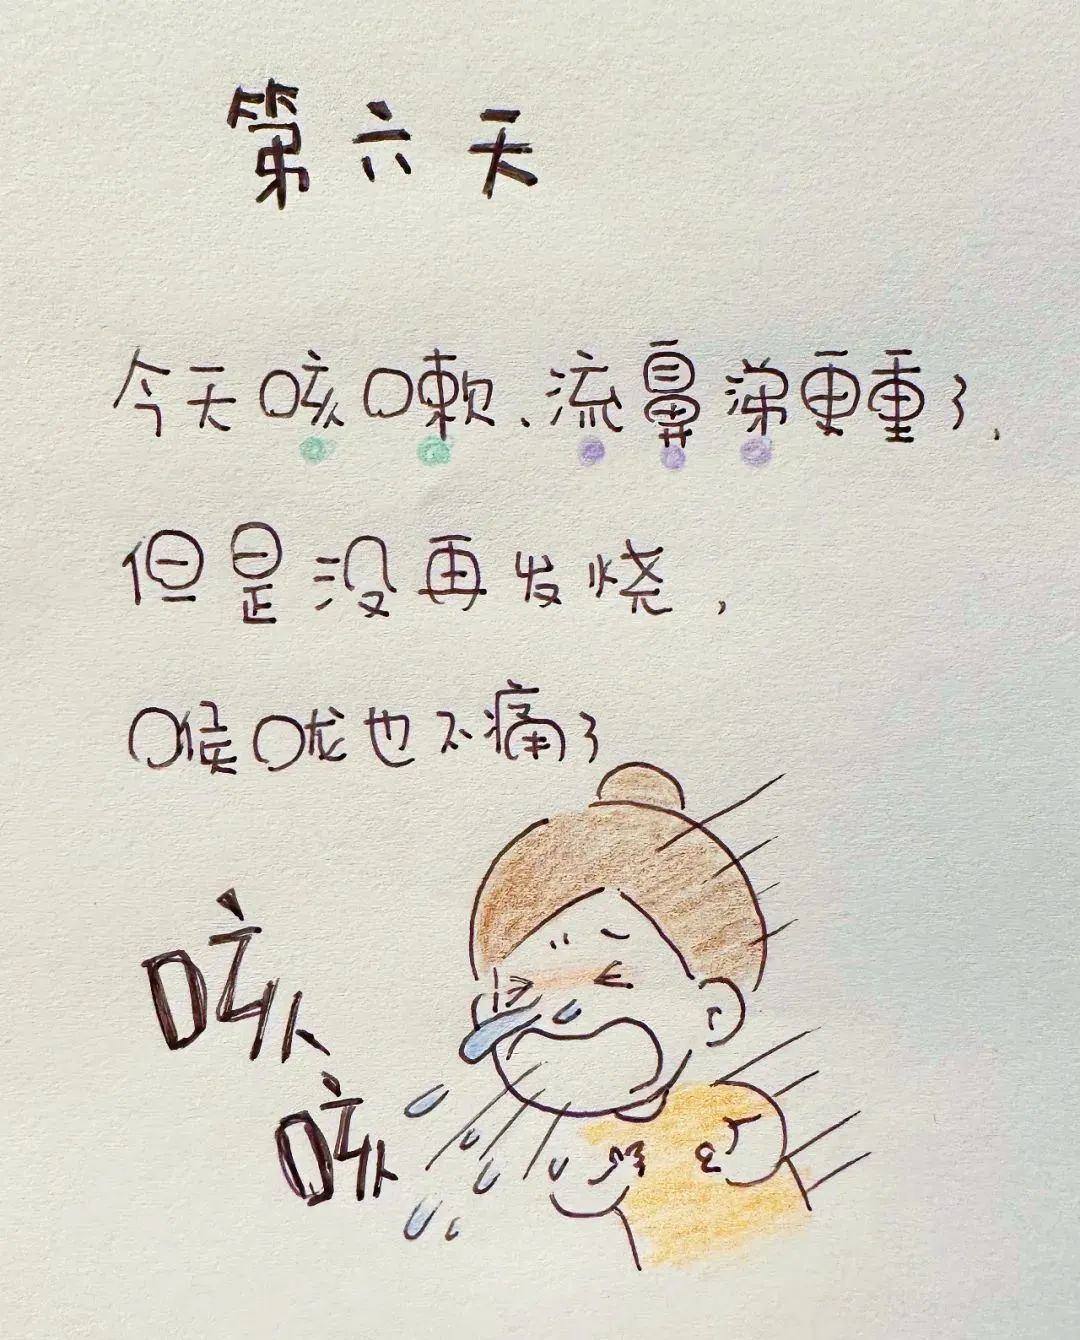 第六天
今天咳嗽、流鼻涕更重了,
但是没再发烧,
喉咙也不痛了
咳
咳